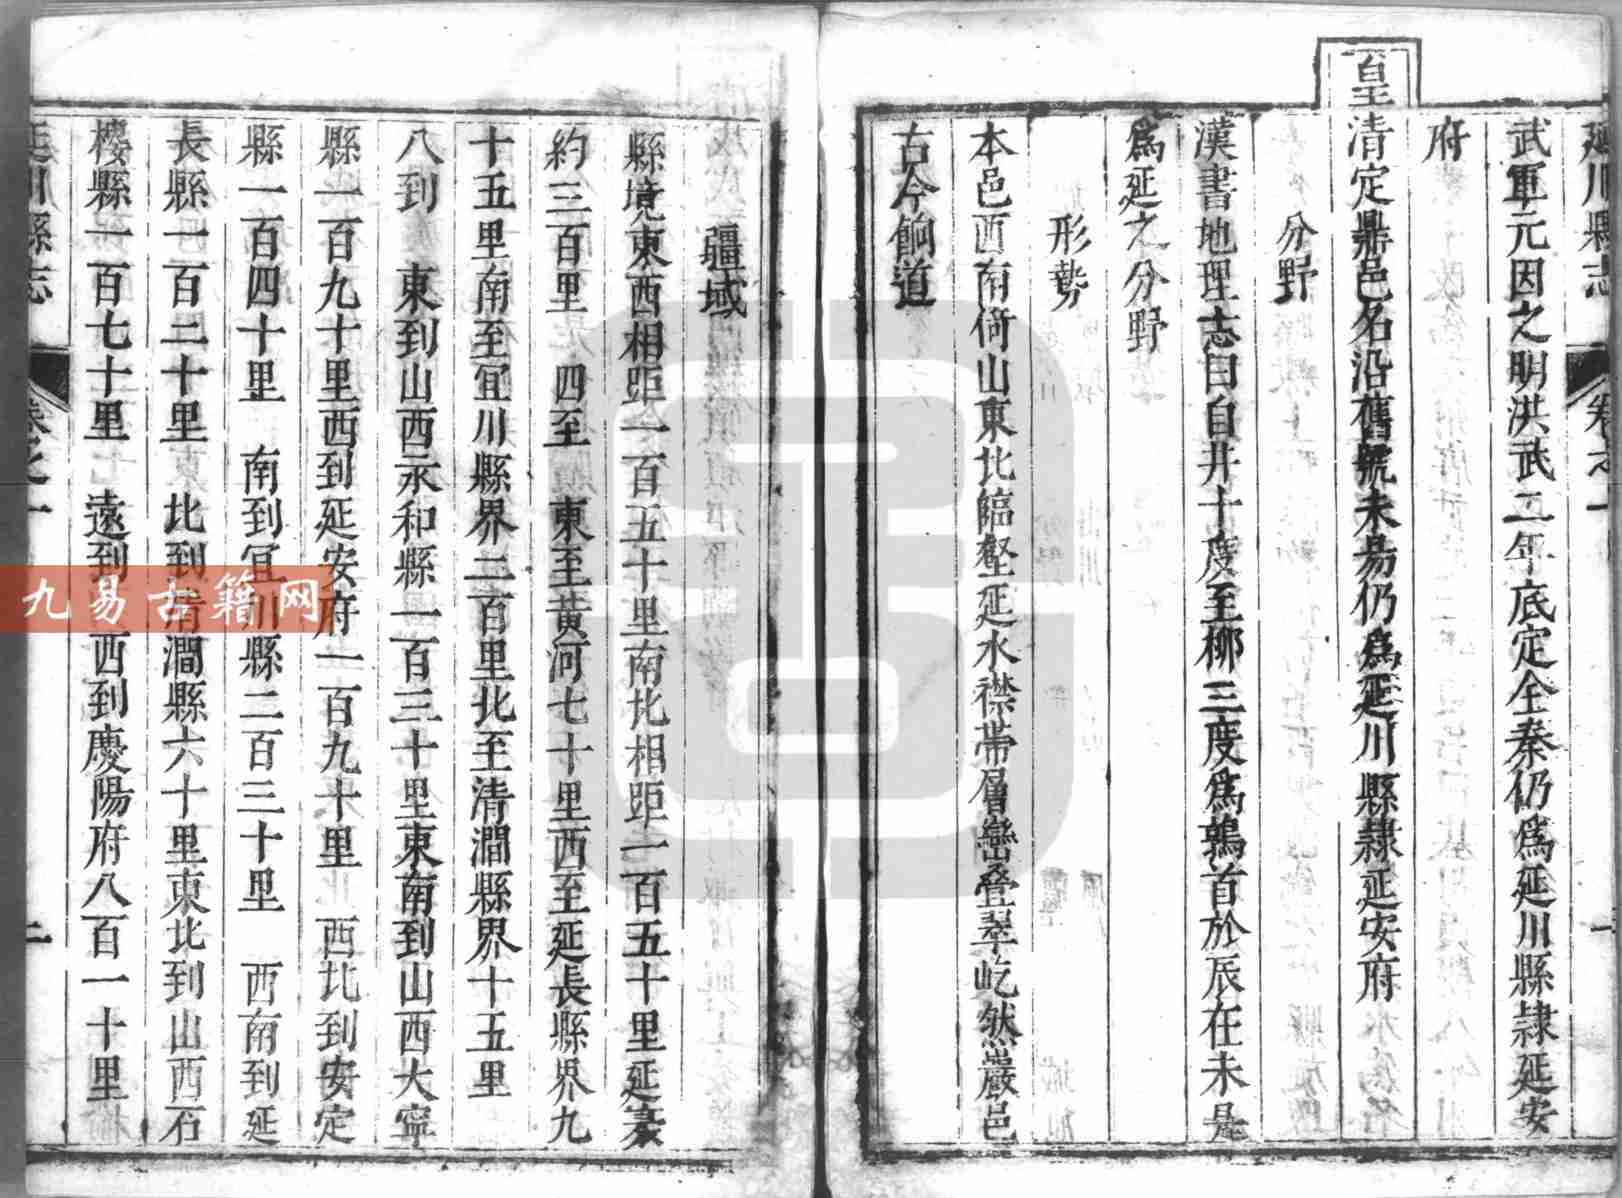 延川縣志 卷之一
武軍元因之明洪武二年底定全秦仍爲延川縣隷延安
府
皇清定鼎邑名沿舊號未易仍爲延川縣隷延安府
分野
漢書地理志曰自井十度至柳三度爲鶉首於辰在未是
爲延之分野
形勢
本邑西南倚山東北臨壑延水襟帶層巒叠翠屹然巖邑
古今餉道
疆域
縣境東西相距一百五十里南北相距一百五十里延袤
約三百里 四至 東至黃河七十里西至延長縣界九
十五里南至冝川縣界二百里北至清澗縣界十五里
八到 東到山西永和縣一百三十里東南到山西大寧
縣一百九十里西到延安府一百九十里 西北到安定
縣一百四十里 南到冝川縣二百三十里 西南到延
長縣一百二十里 北到清澗縣六十里東北到山西石
樓縣一百七十里 遠到 西到慶陽府八百一十里
延川縣志 卷之一 二
九易古籍网